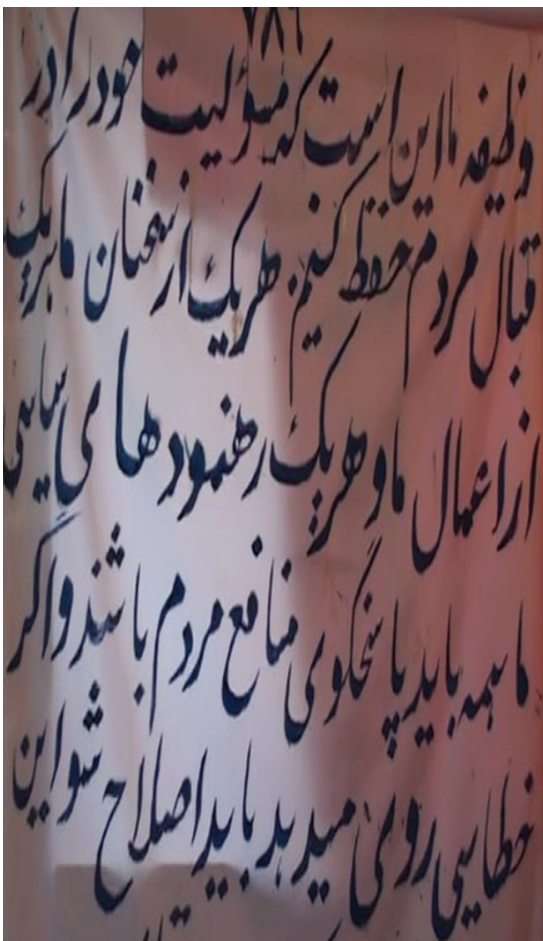 ۷۸۶
وظیفه ما این است که مسؤلیت خود را در
قبال مردم حفظ کنیم. هر یک از سخنان ما هر یک
از اعمال ما و هر یک رهنمودهای سیاسی
ما همه باید پاسخگوی منافع مردم باشند و اگر
خطایی روی میدهد باید اصلاح شو این